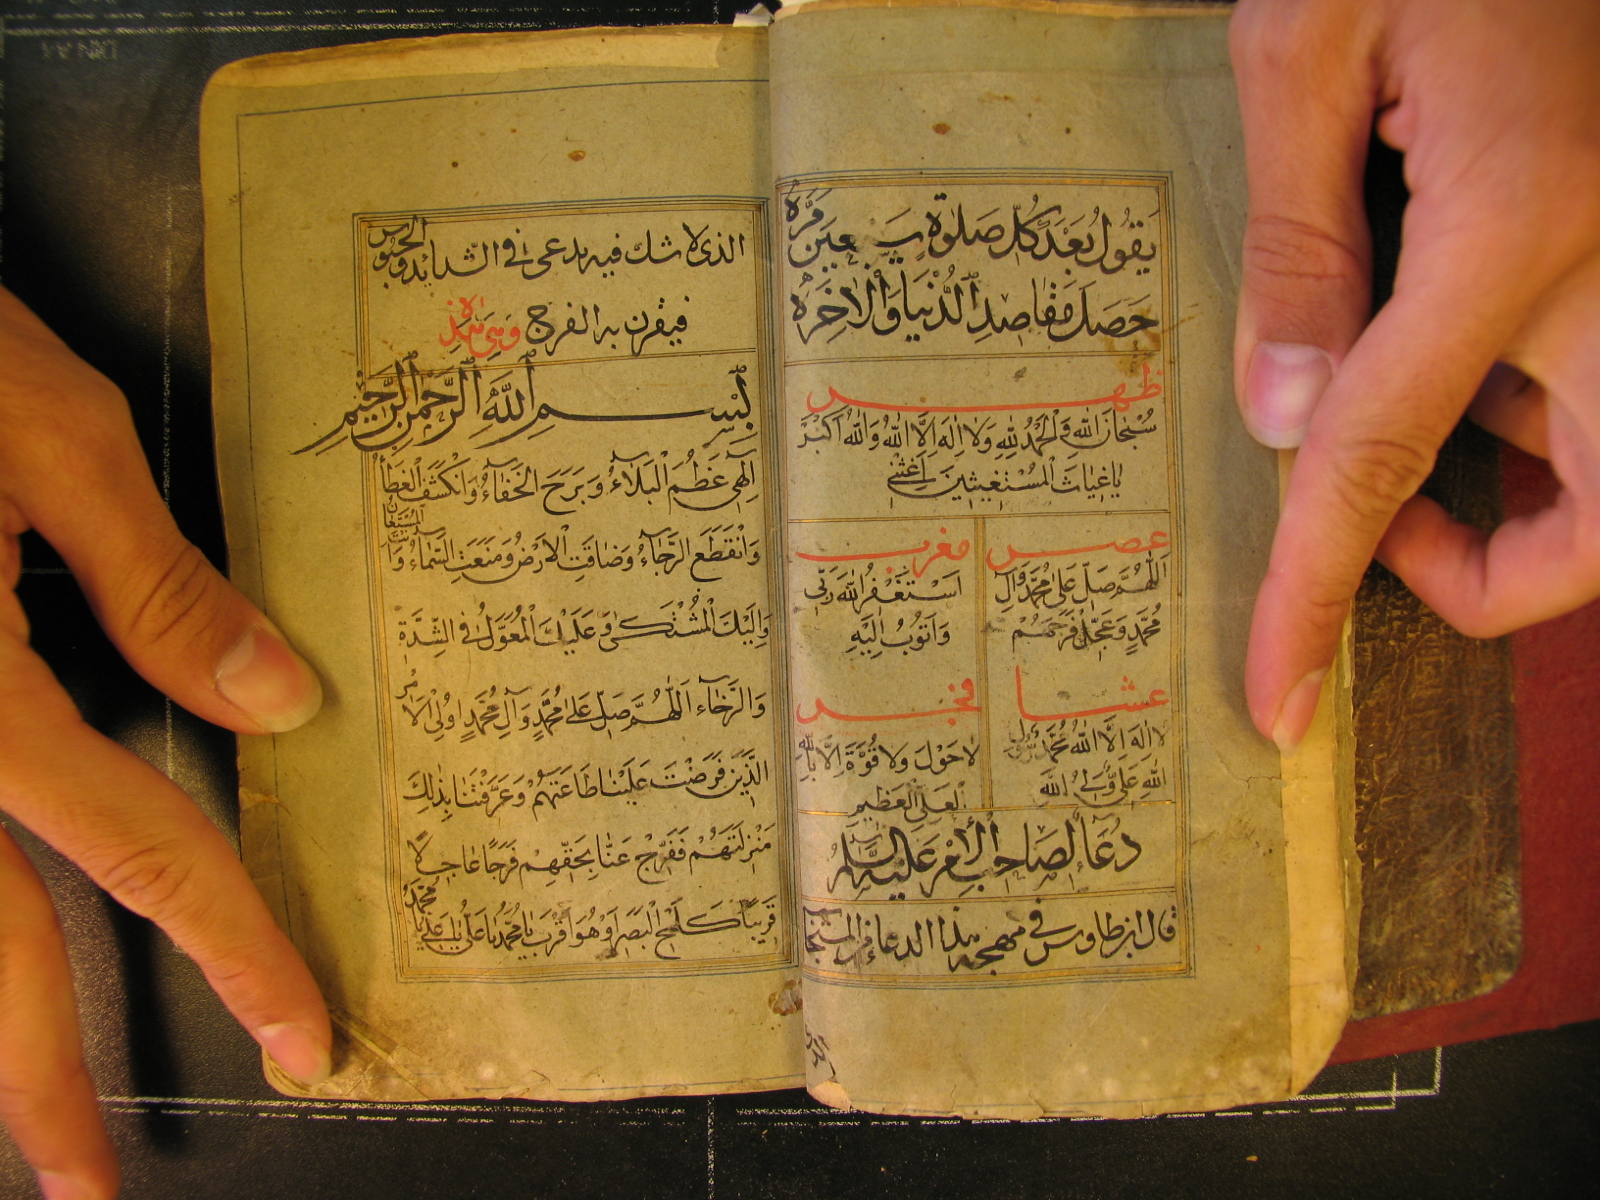 يَقُولُ بَعْدَ كُلِّ صَلٰوةٍ سَبْعِينَ مَرَّةً
حَصَلَ مَقٰاصِدِ الدُّنْيَا وَالْاٰخِرَةِ
ظهر
سُبْحٰانَ اللّٰهِ وَالْحَمْدُ لِلّٰهِ وَلٰا اِلٰهَ اِلَّا اللّٰهُ وَاللّٰهُ اَكْبَرُ
يٰا غِيٰاثَ الْمُسْتَغِيثِينَ اَغِثْنِي
عصر
اَللّٰهُمَّ صَلِّ عَلٰى مُحَمَّدٍ وَآلِ
مُحَمَّدٍ وَعَجِّلْ فَرَجَهُمْ
مغرب
اَسْتَغْفِرُ اللّٰهَ رَبِّي
وَاَتُوبُ اِلَيْهِ
عشا
لٰا اِلٰهَ اِلَّا اللّٰهُ مُحَمَّدٌ رَسُولُ
اللّٰهِ عَلِيٌّ وَلِيُّ اللّٰهِ
فجر
لٰا حَوْلَ وَلٰا قُوَّةَ اِلَّا بِاللّٰهِ
الْعَلِيِّ الْعَظِيمِ
دُعَاءُ لصَاحِبِ الْاَمْرِ عَلَيْهِ السَّلَامُ
قال ابن طاوس في مهجه هذا الدعاء من المستجاب
الذي لا شك فيه يدعى في الشدايد والحبوس
فيقرن به الفرج وَهِيَ هٰذِهِ
بِسْمِ اللّٰهِ الرَّحْمٰنِ الرَّحِيمِ
اِلٰهِي عَظُمَ الْبَلَاءُ وَبَرِحَ الْخَفَاءُ وَانْكَشَفَ الْغِطَاءُ
وَانْقَطَعَ الرَّجَاءُ وَضَاقَتِ الْاَرْضُ وَمُنِعَتِ السَّمَاءُ وَاَنْتَ الْمُسْتَعَانُ
وَاِلَيْكَ الْمُشْتَكىٰ وَعَلَيْكَ الْمُعَوَّلُ فِي الشِّدَّةِ
وَالرَّخَاءِ اَللّٰهُمَّ صَلِّ عَلٰى مُحَمَّدٍ وَآلِ مُحَمَّدٍ اُولِي الْاَمْرِ
الَّذِينَ فَرَضْتَ عَلَيْنَا طَاعَتَهُمْ وَعَرَّفْتَنَا بِذٰلِكَ
مَنْزِلَتَهُمْ فَفَرِّجْ عَنَّا بِحَقِّهِمْ فَرَجًا عَاجِلًا
قَرِيبًا كَلَمْحِ الْبَصَرِ اَوْ هُوَ اَقْرَبُ يَا مُحَمَّدُ يَا عَلِيُّ يَا عَلِيُّ يَا مُحَمَّدُ